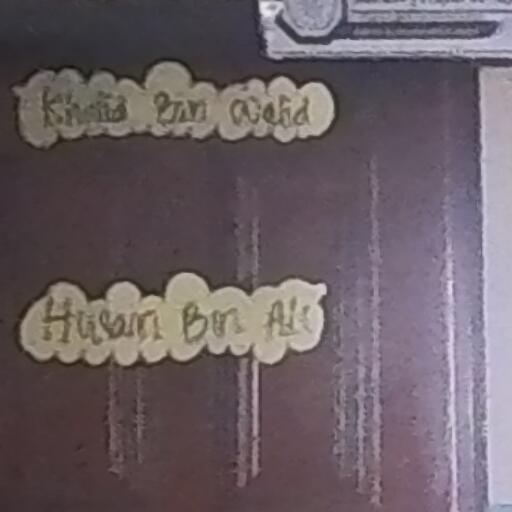 Khalid Bin Walid
Husain Bin Ali